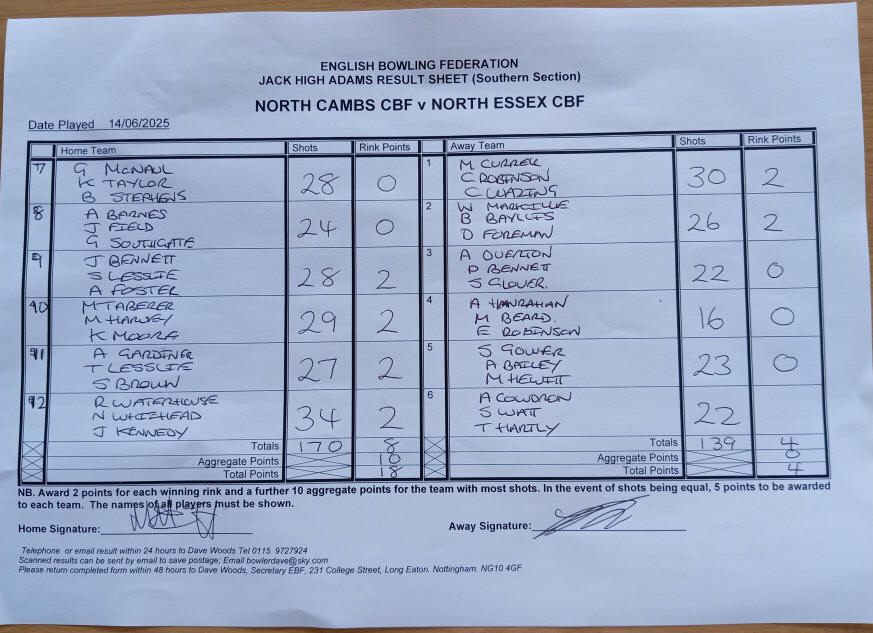 ENGLISH BOWLING FEDERATION
JACK HIGH ADAMS RESULT SHEET (Southern Section)
NORTH CAMBS CBF v NORTH ESSEX CBF
Date Played 14/06/2025
Home Team Shots Rink Points Away Team Shots Rink Points
7 G McNAUL 1 M CURRELL
K TAYLOR 28 0 C ROBINSON 30 2
B STEPHENS C WARING
8 A BARNES 2 W MARKILLIE
J FIELD 24 0 B BAYLIS 26 2
G SOUTHGATE D FOREMAN
9 J BENNETT 3 A OVERTON
S LESSLIE 28 2 P BENNETT 22 0
A FOSTER S GLOVER.
10 M TABERER 4 A HANRAHAN
M HARVEY 29 2 M BEARD. 16 0
K MOORE E ROBINSON
11 A GARDINER 5 S GOWER
T LESSLIE 27 2 A BAILEY 23 0
S BROWN M HEWITT
12 R WATERHOUSE 6 A COWDRON
N WHITEHEAD 34 2 S WATT 22
J KENNEDY T HARTLY
Totals 170 8 Totals 139 4
Aggregate Points 10 Aggregate Points 0
Total Points 18 Total Points 4
NB. Award 2 points for each winning rink and a further 10 aggregate points for the team with most shots. In the event of shots being equal, 5 points to be awarded
to each team. The names of all players must be shown.
Home Signature: Away Signature:
Telephone or email result within 24 hours to Dave Woods Tel 0115 9727924
Scanned results can be sent by email to save postage; Email bowlerdave@sky.com
Please return completed form within 48 hours to Dave Woods, Secretary EBF, 231 College Street, Long Eaton. Nottingham. NG10 4GF